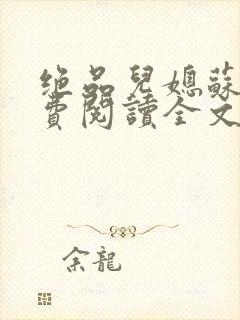 绝品兒媳蘇
費閱讀全文
余龍